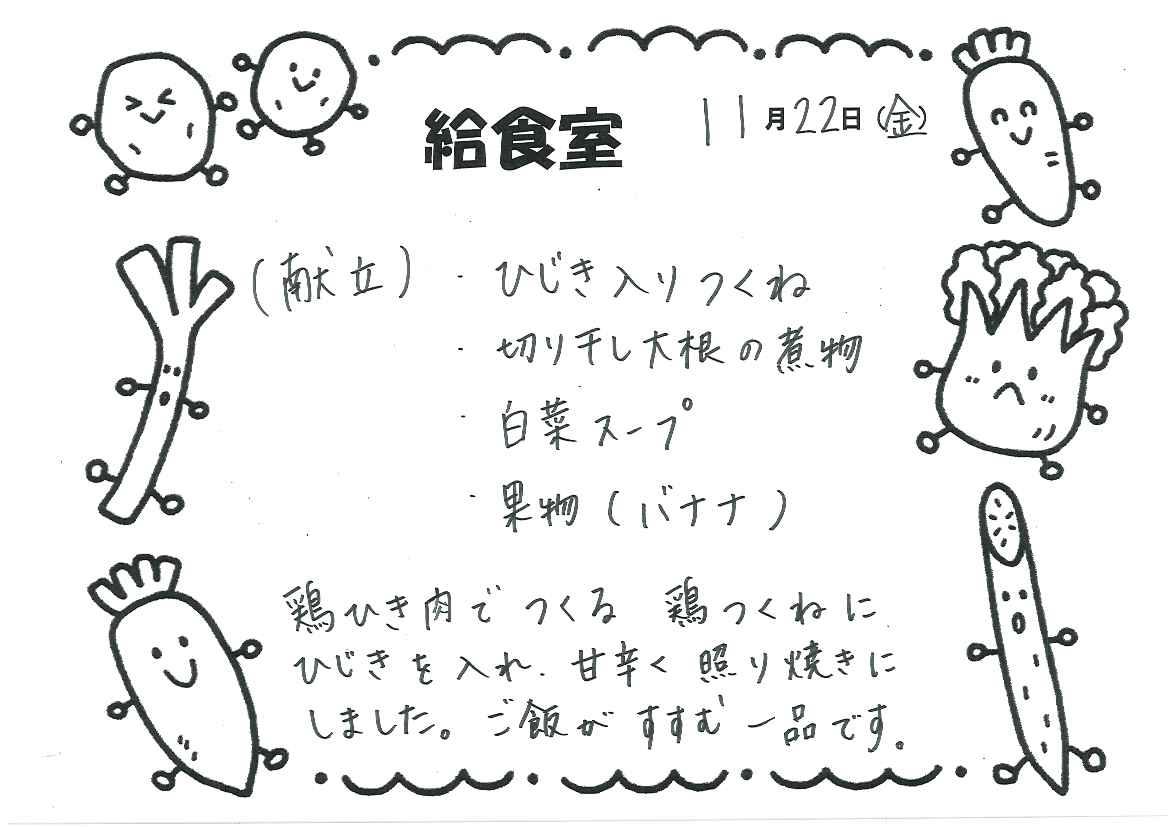 給食室 11月22日(金)
(献立) ・ひじき入りつくね
・切り干し大根の煮物
・白菜スープ
・果物(バナナ)
鶏ひき肉でつくる 鶏つくねに
ひじきを入れ、甘辛く照り焼きに
しました。ご飯がすすむ一品です。